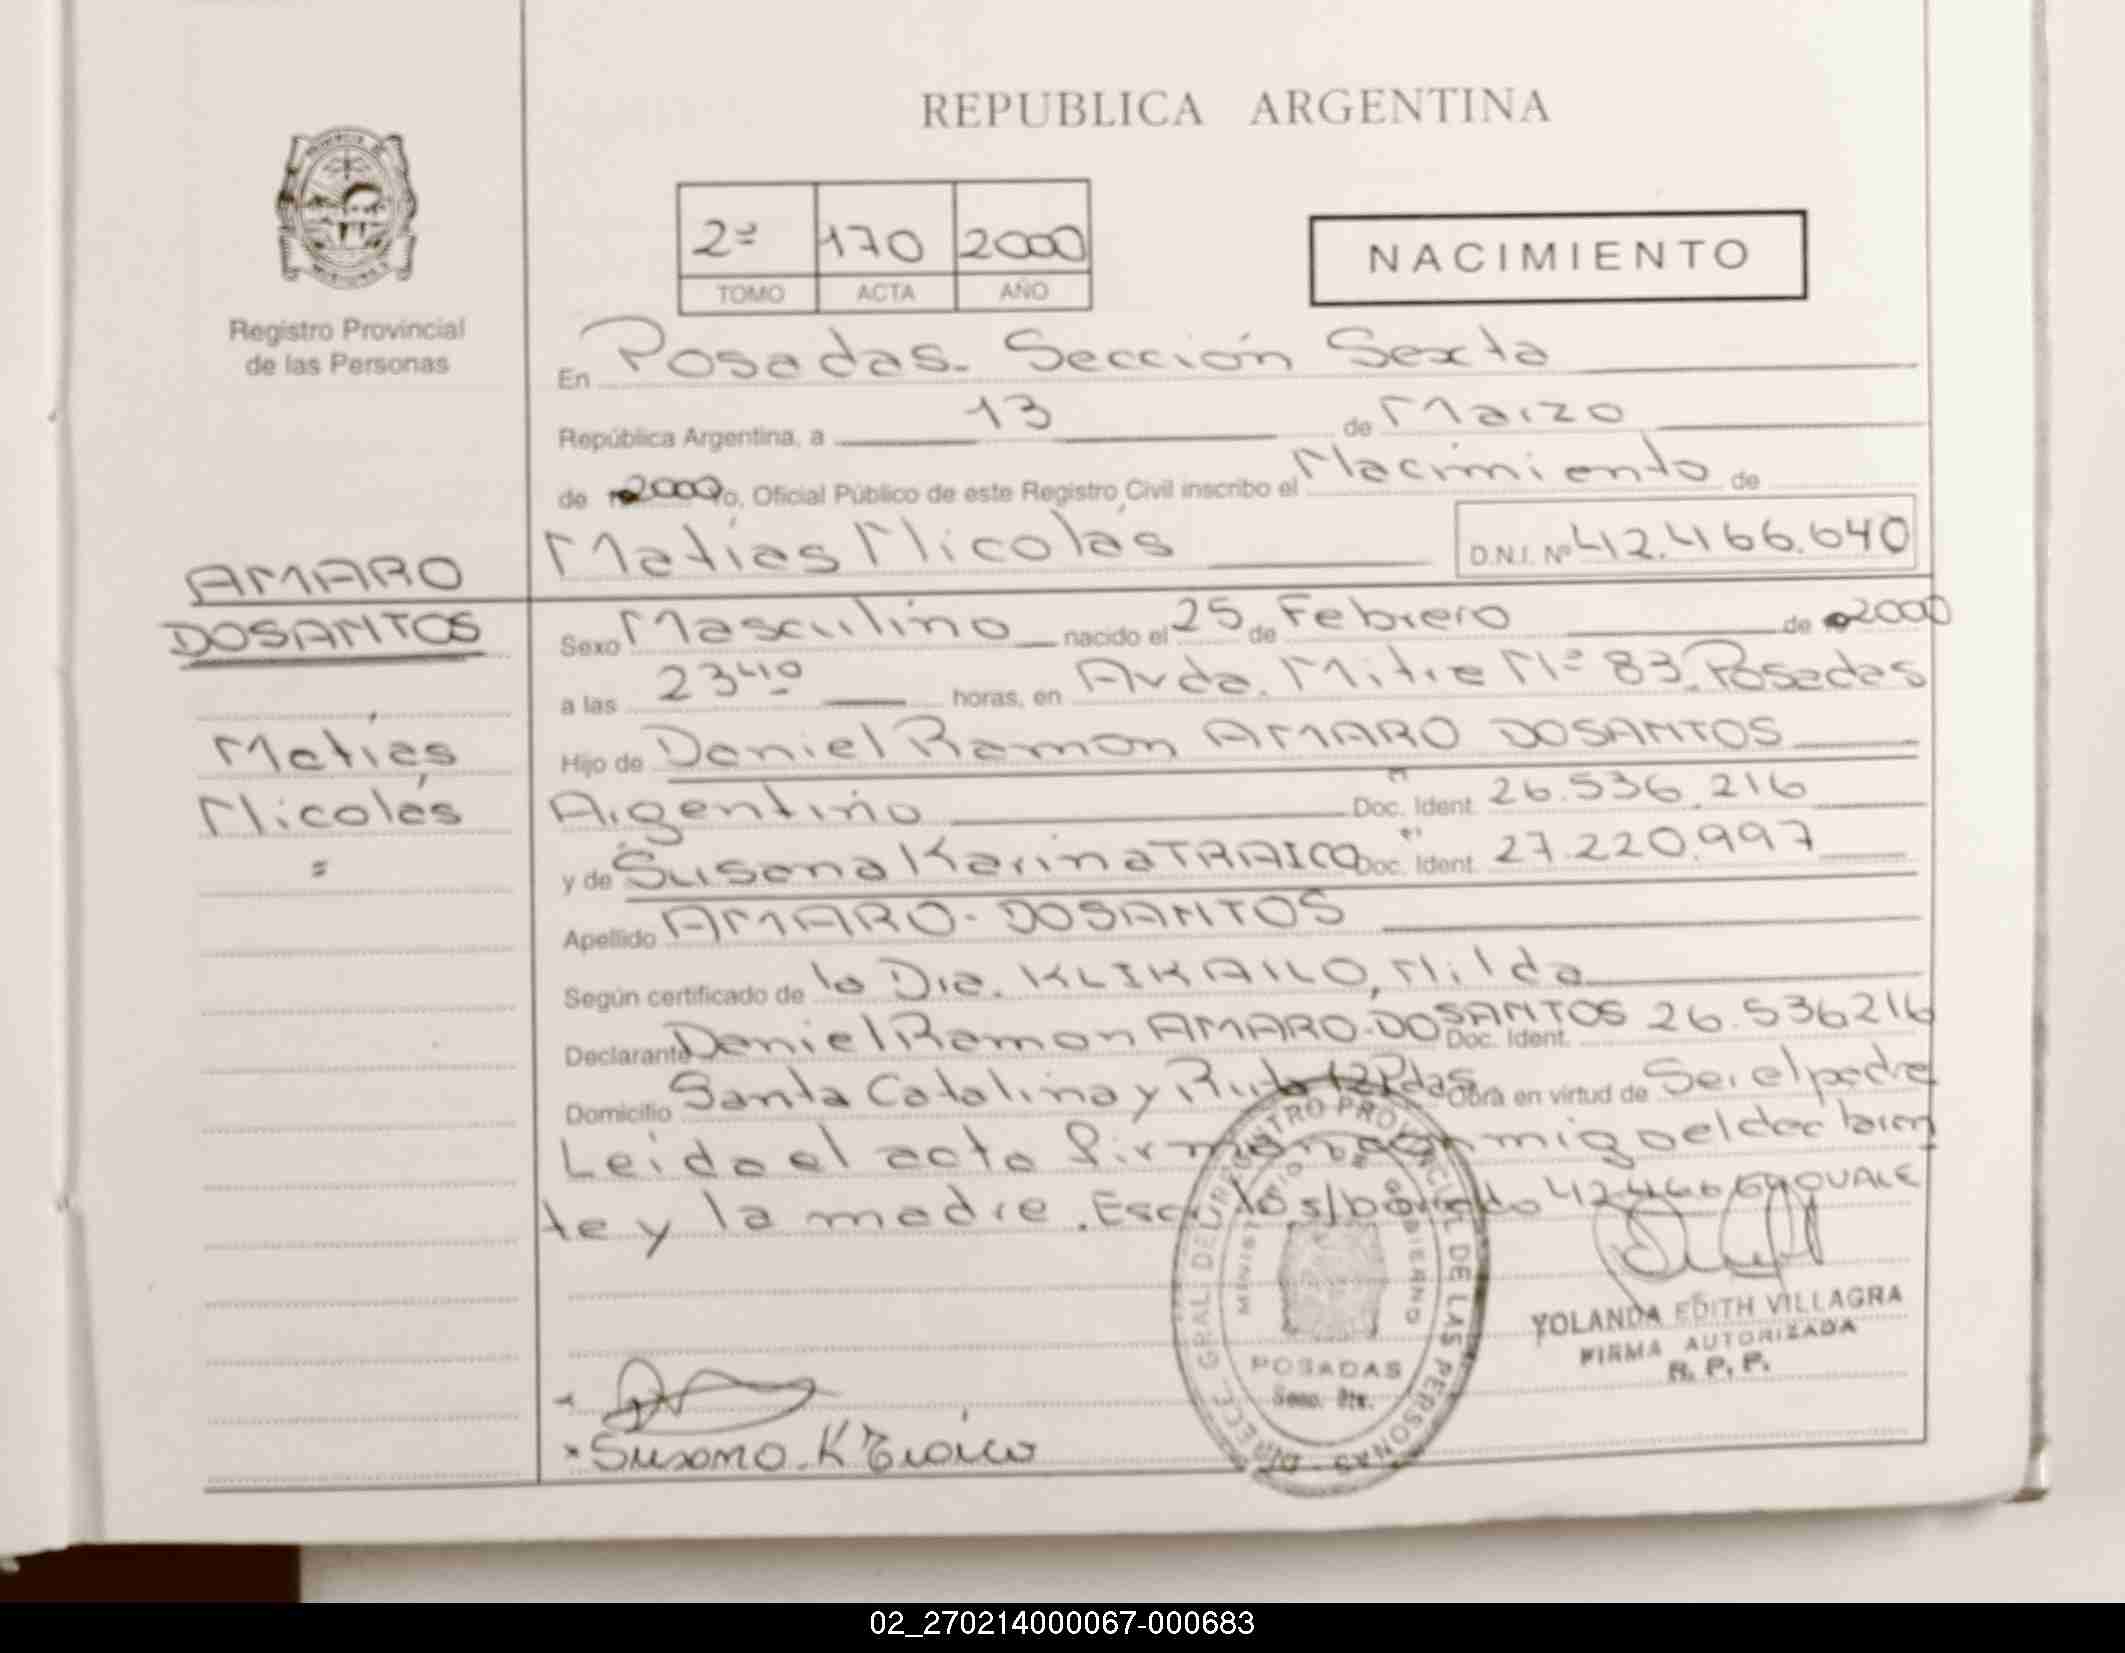 REPUBLICA ARGENTINA
2º 170 2000
TOMO ACTA AÑO
NACIMIENTO
Registro Provincial
de las Personas
En Posadas. Sección Sexta
República Argentina, a 13 de Marzo
de 2000 Yo, Oficial Público de este Registro Civil inscribo el Nacimiento de
Matías Nicolás D.N.I. Nº 42.466.640
AMARO
DOSANTOS
Matías
Nicolás
Sexo Masculino nacido el 25 de Febrero de 2000
a las 23 40 horas, en Avda. Mitre Nº 83. Posadas
Hijo de Daniel Ramon AMARO DOSANTOS
Argentino Doc. Ident. 26.536.216
y de Susana Karina TRAICO Doc. Ident. 27.220.997
Apellido AMARO-DOSANTOS
Según certificado de la Dra. KLIKAILO, Nilda
Declarante Daniel Ramon AMARO-DOSANTOS Doc. Ident. 26.536216
Domicilio Santa Catalina y Ruta 12 Pdas Obra en virtud de Ser el padre
Leida el acta firman conmigo el declaran
te y la madre. Escrito s/borrado 42466640 VALE
DIRECC. GRAL. DEL REGISTRO PROVINCIAL DE LAS PERSONAS
MINISTERIO DE GOBIERNO
POSADAS
Secc. 6ta.
YOLANDA EDITH VILLAGRA
FIRMA AUTORIZADA
R. P. P.
Susana. K Traico
02_270214000067-000683